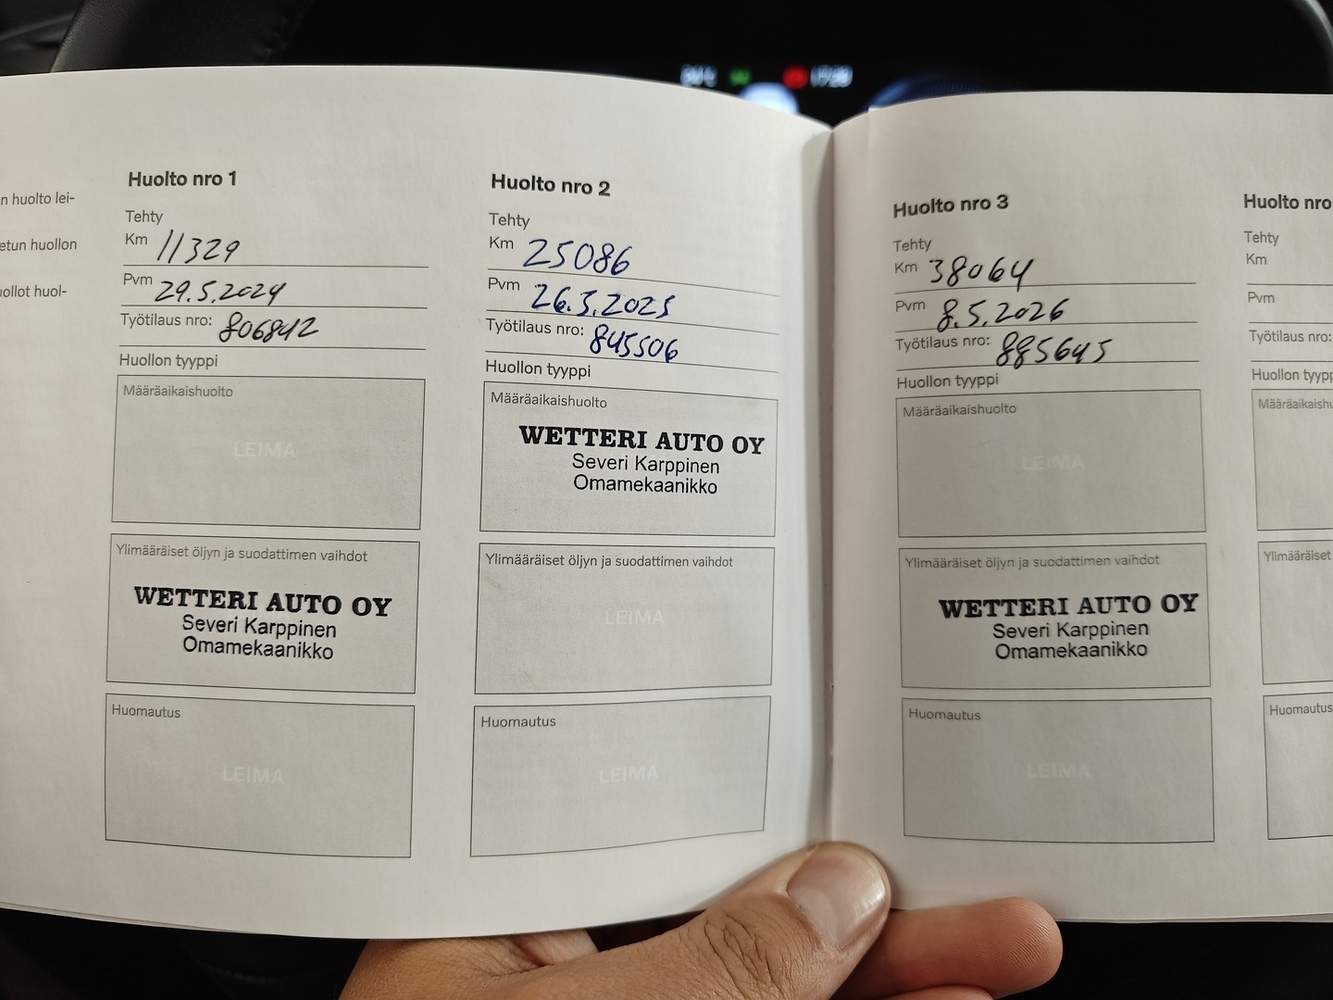 n huolto lei-
etun huollon
ollot huol-
Huolto nro 1
Tehty
Km 11329
Pvm 29.5.2024
Työtilaus nro: 806842
Huollon tyyppi
Määräaikaishuolto
LEIMA
Ylimääräiset öljyn ja suodattimen vaihdot
WETTERI AUTO OY
Severi Karppinen
Omamekaanikko
Huomautus
LEIMA
Huolto nro 2
Tehty
Km 25086
Pvm 26.5.2025
Työtilaus nro: 845506
Huollon tyyppi
Määräaikaishuolto
WETTERI AUTO OY
Severi Karppinen
Omamekaanikko
Ylimääräiset öljyn ja suodattimen vaihdot
LEIMA
Huomautus
LEIMA
Huolto nro 3
Tehty
Km 38064
Pvm 8.5.2026
Työtilaus nro: 885645
Huollon tyyppi
Määräaikaishuolto
LEIMA
Ylimääräiset öljyn ja suodattimen vaihdot
WETTERI AUTO OY
Severi Karppinen
Omamekaanikko
Huomautus
LEIMA
Huolto nro
Tehty
Km
Pvm
Työtilaus nro:
Huollon tyypp
Määräaikaishu
Ylimääräiset
Huomautus